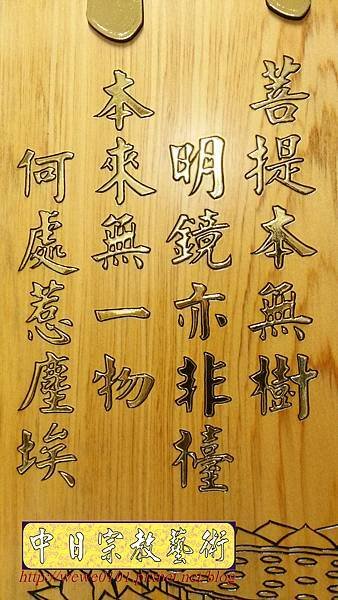 菩提本無樹
明鏡亦非檯
本來無一物
何處惹塵埃
中日宗教藝術
http://wewe0101.pixnet.net/blog